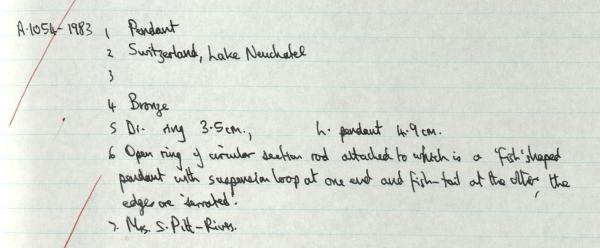 A.1054-1983 1 Pendant
2 Switzerland, Lake Neuchatel
3
4 Bronze
5 Di. ring 3.5cm., h. pendant 4.9cm.
6 Open ring of circular section rod attached to which is a 'fish' shaped
pendant with suspension loop at one end and fish-tail at the other, the
edges are 'serrated'.
7. Mrs. S. Pitt-Rivers.